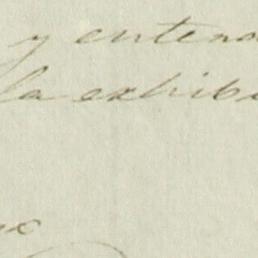 y entera
la exhibi